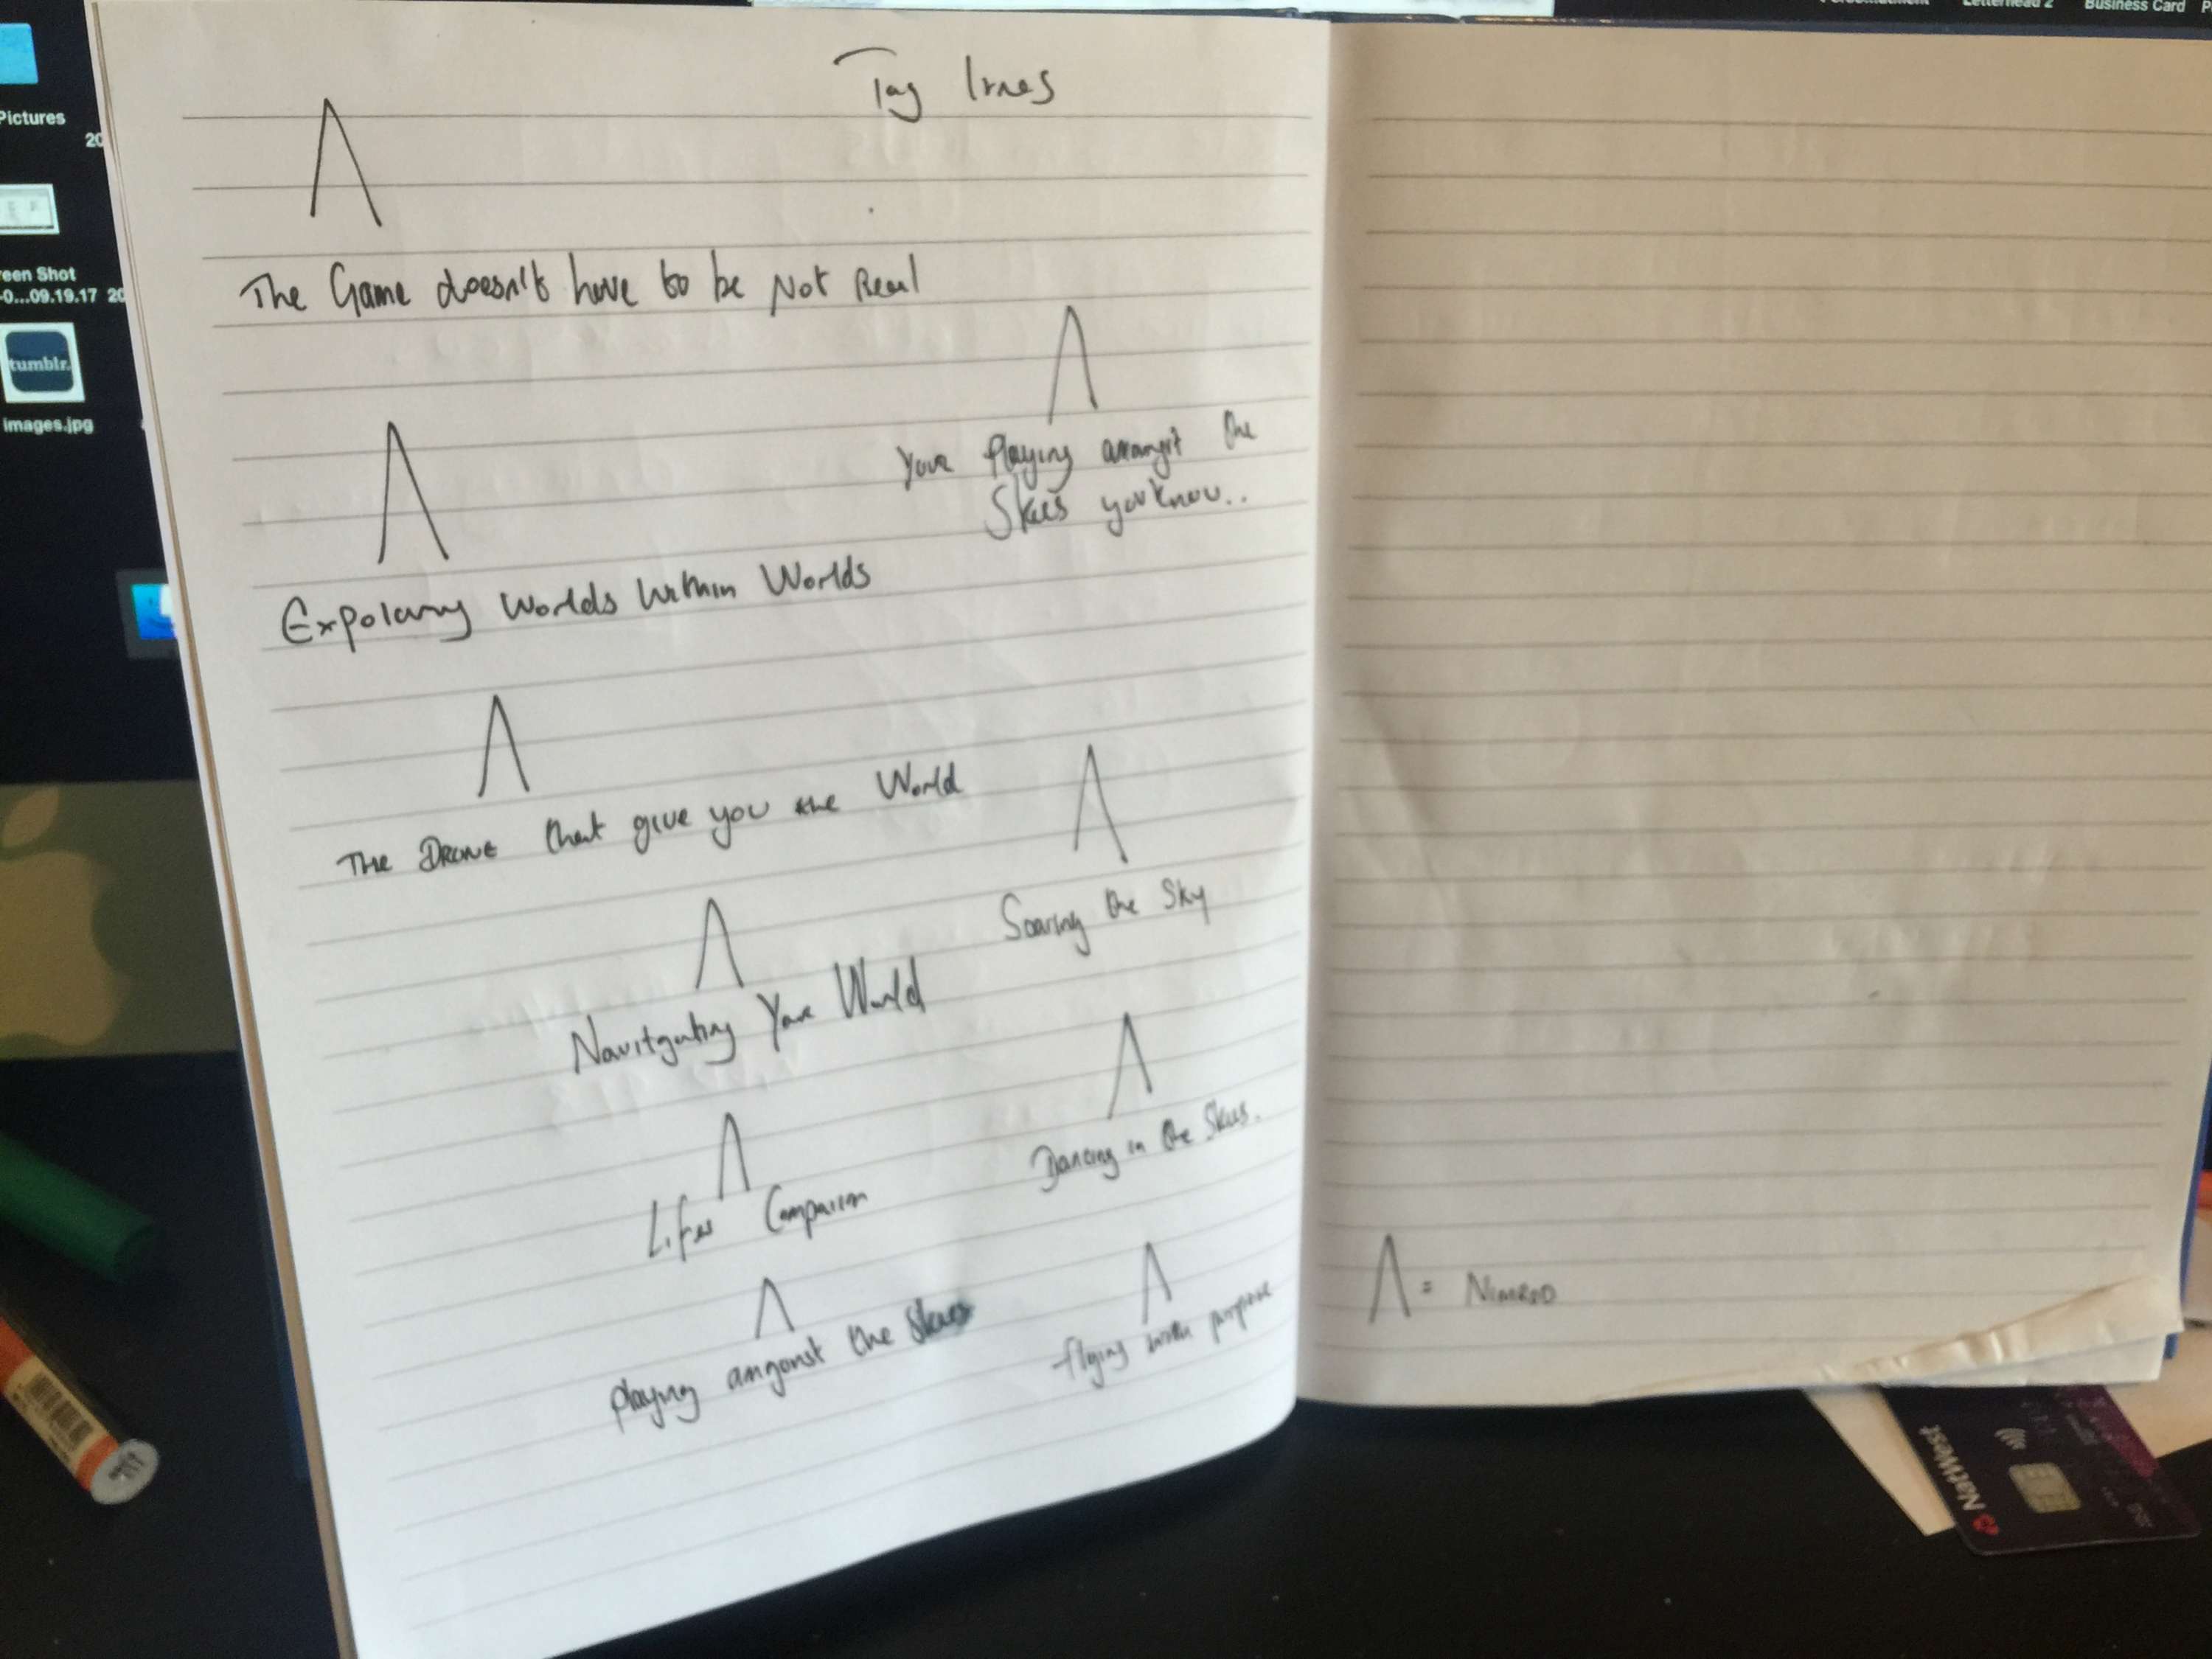 Tag lines
Λ
The Game doesn't have to be Not Real
Λ
Your playing amongst the
Skies you know..
Λ
Expolaring Worlds Within Worlds
Λ
The DRONE that give you the World
Λ
Soaring the Sky
Λ
Navitgating Your World
Λ
Dancing in the Skies.
Λ
Lifes Companion
Λ
playing amgonst the Skies
Λ
flying with purpose
Λ = NIMROD
Pictures
20
een Shot
-0...09.19.17 20
tumblr.
images.jpg
Letterhead 2
Business Card
P
NatWest